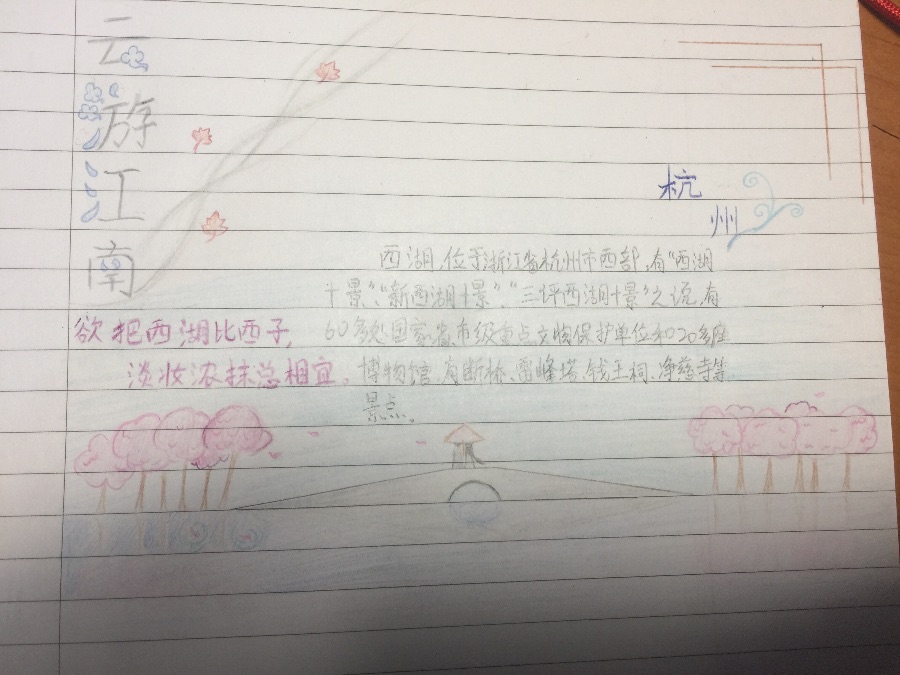 云游江南
杭州
西湖,位于浙江省杭州市西部,有“西湖
十景”、“新西湖十景”、“三坪西湖十景”之说,有
60多处国家、省、市级重点文物保护单位和020多座
博物馆,有断桥、雷峰塔、钱王祠、净慈寺等
景点。
欲把西湖比西子,
淡妆浓抹总相宜。